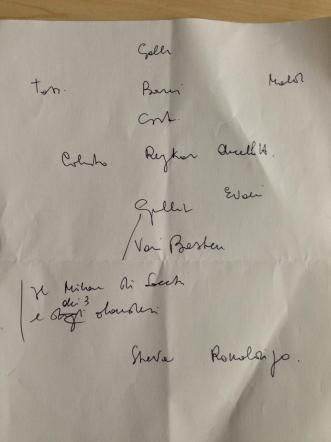 Galli
Tass. Baresi Maldi
Cost.
Colombo Reykar Ancelloti.
Evani
Gullit
Van Basten
Il Milan di Sacchi
dei 3
e degli olandesi
Stefa Ronaldigo.